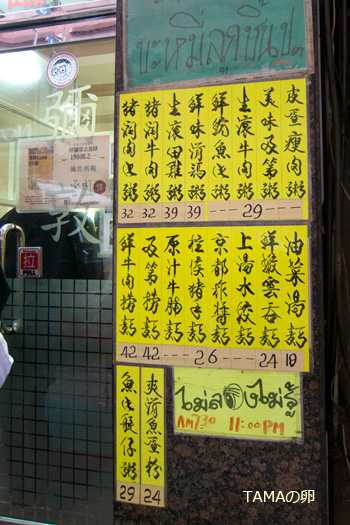 บะหมี่ลูกชิ้นปลา
皮蛋瘦肉粥
美味及第粥
生滾牛肉粥
鮮魷魚肉粥
鮮味滑鷄粥
生滾田雞粥
豬潤牛肉粥
豬潤肉丸粥
32 32 39 39 --- 29 ---
油菜湯
鮮蝦雲吞麵
上湯水餃麵
京都炸醬麵
柱侯豬手麵
原汁牛腩麵
及第撈麵
鮮牛肉撈麵
42 42 --- 26 --- 24 18
爽滑魚蛋粉
魚生艇仔粥
29 24
ไม่ลองไม่รู้
AM7:30 11:00PM
彌敦
拉
PULL
TAMAの卵